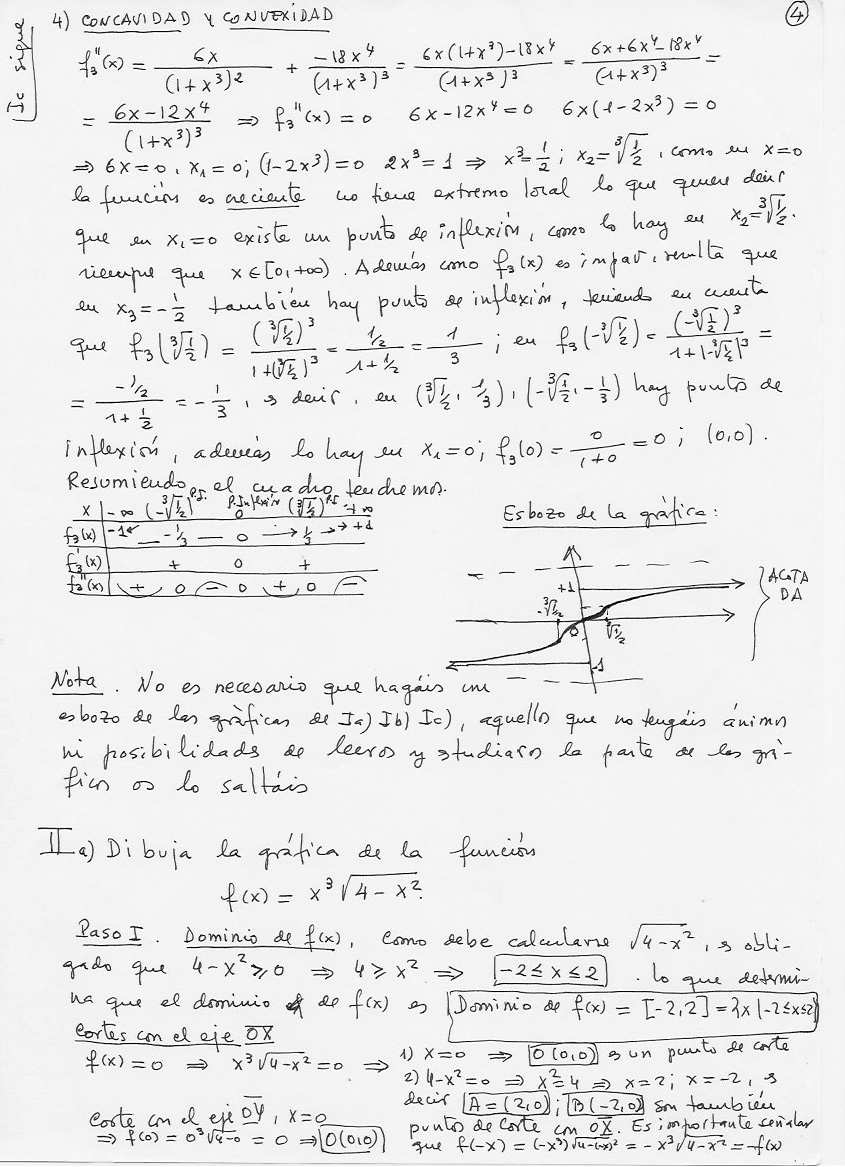 Ic sigue
4) CONCAVIDAD y CONVEXIDAD
4
f₃''(x) = 6x/(1+x³)² + -18x⁴/(1+x³)³ = 6x(1+x³)-18x⁴/(1+x³)³ = 6x+6x⁴-18x⁴/(1+x³)³ =
= 6x-12x⁴/(1+x³)³ ⇒ f₃''(x) = 0 6x-12x⁴=0 6x(1-2x³) = 0
⇒ 6x=0, x₁=0; (1-2x³)=0 2x³=1 ⇒ x³=1/2; x₂=∛1/2, como en x=0
la función es creciente no tiene extremo local lo que quiere decir
que en x₁=0 existe un punto de inflexión, como lo hay en x₂=∛1/2.
siempre que x∈[0,+∞). Además como f₃(x) es impar, resulta que
en x₃=-1/2 también hay punto de inflexión, teniendo en cuenta
que f₃(∛1/2) = (∛1/2)³/1+(∛1/2)³ = 1/2/1+1/2 = 1/3; en f₃(-∛1/2) = (-∛1/2)³/1+|-∛1/2|³ =
= -1/2/1+1/2 = -1/3, es decir, en (∛1/2, 1/3), (-∛1/2, -1/3) hay puntos de
inflexión, además lo hay en x₁=0; f₃(0) = 0/1+0 = 0; (0,0).
Resumiendo, el cuadro tendremos.
x -∞ (-∛1/2) P.I. P. Inflexión 0 (∛1/2) P.I. +∞
f₃(x) -1 ← — -1/3 — 0 → 1/3 → → +1
f₃'(x) + 0 +
f₃''(x) + 0 - 0 + 0 -
Esbozo de la gráfica:
+1
-∛1/2
0
∛1/2
-1
ACOTA
DA
Nota. No es necesario que hagáis un
esbozo de las gráficas de Ia) Ib) Ic), aquellos que no tengáis ánimos
ni posibilidads de leeros y estudiaros la parte de los grá-
ficos os lo saltáis
IIa) Dibuja la gráfica de la función
f(x) = x³√4-x².
Paso I. Dominio de f(x), como debe calcularse √4-x², es obli-
gado que 4-x²≥0 ⇒ 4≥x² ⇒ -2≤x≤2. lo que determi-
na que el dominio de f(x) es Dominio de f(x) = [-2,2] = {x|-2≤x≤2}
Cortes con el eje OX
f(x)=0 ⇒ x³√4-x²=0 ⇒ 1) x=0 ⇒ O(0,0) es un punto de corte
2) 4-x²=0 ⇒ x²=4 ⇒ x=2; x=-2, es
decir A=(2,0); B(-2,0) son también
puntos de corte con OX. Es importante señalar
que f(-x) = (-x³)√4-(-x)² = -x³√4-x² = -f(x)
Corte con el eje OY, x=0
⇒ f(0) = 0³√4-0 = 0 ⇒ O(0,0)